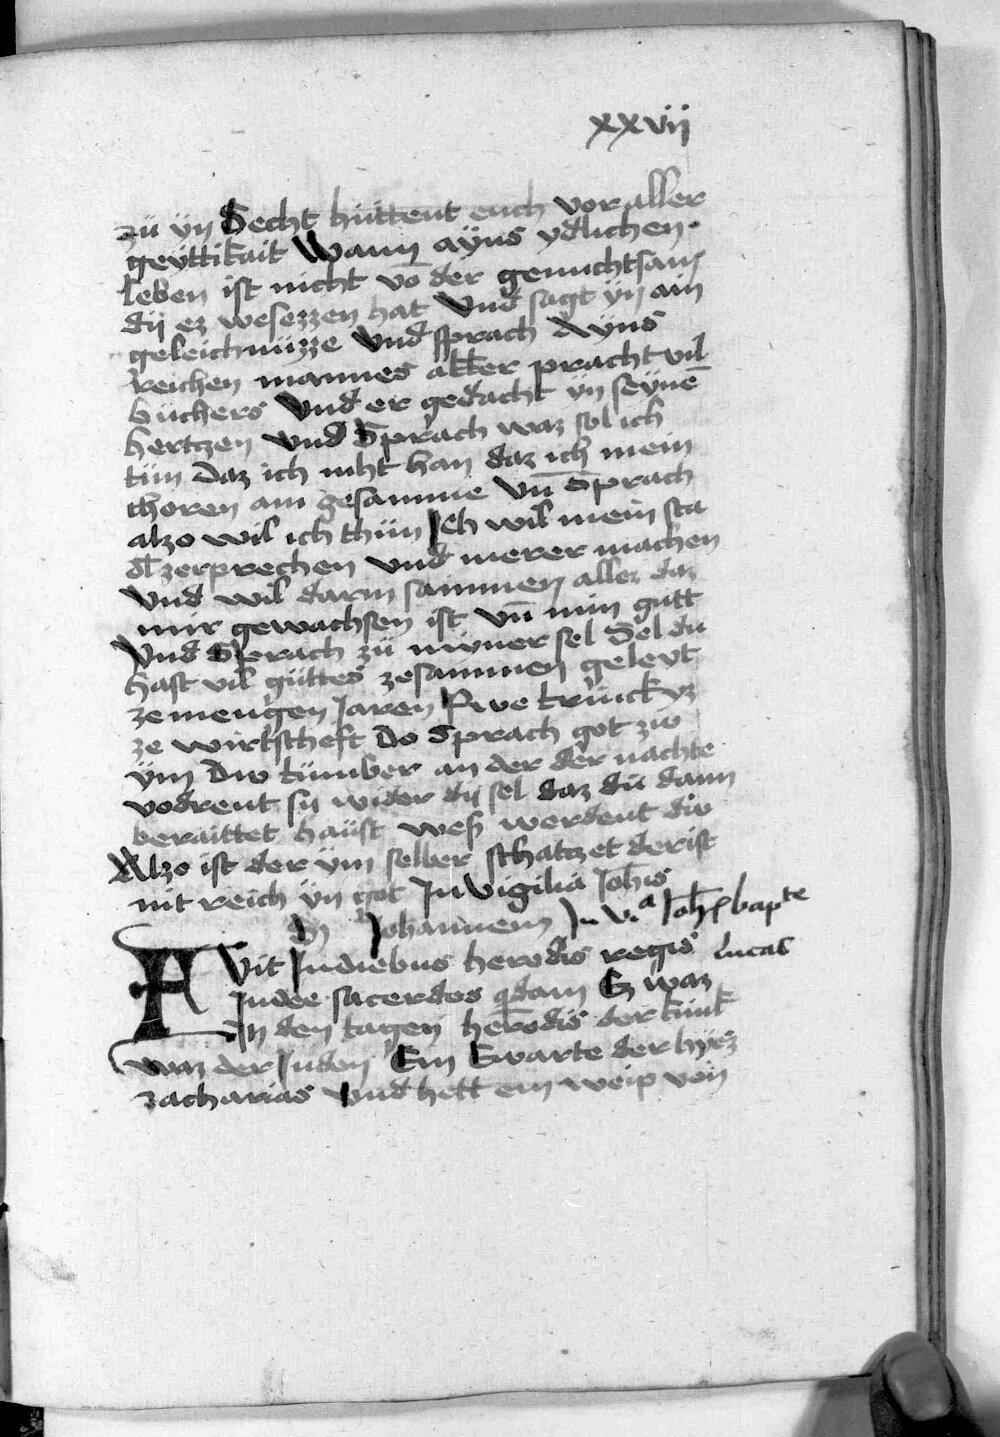 xxvij
zü ÿn Secht hüttent euch vor aller
geyttikait Wann aÿns ydlichen
leben ist nicht vō der genuchtsam
dy ez wesezzen hat Vnd sagt ÿn ain
geleichnüzze Vnd sprach Aÿns
reichen mannes akker pracht vil
büchers Vnd er gedacht ÿn seÿnē
hertzen Vnd Sprach waz sol ich
tün Daz ich niht han daz ich mein
choren am gesamme Vn̄ Sprach
alzo wil ich thün Ich wil mein sta
dl zerprechen Vnd merer machen
Vnd wil darin sammen allez daz
mir gewachsen ist Vn̄ min gutt
Vnd Sprach zü miner sel Sel du
hast vil güttes zesammen geleyt
ze mengen Jaren Rwe trinck yz
ze wirtscheft Do Sprach got zw
ÿm Dw tümber an der der nachte
vodrent sy wider dy sel daz dü dann
beraittet haüst wes werdent dw
Alzo ist der ÿm selber schatzet der ist
nit reich ÿn got In Vigilia Joh̄is
Johannem In v.a Joh̄ bapte
FVit In diebus herodis regis lucas
Judee sacerdos qdam Ez waz
In den tagen herodis der künk
waz der Juden Ein Ewarte der hyez
zacharias Vnd hett ein weip von